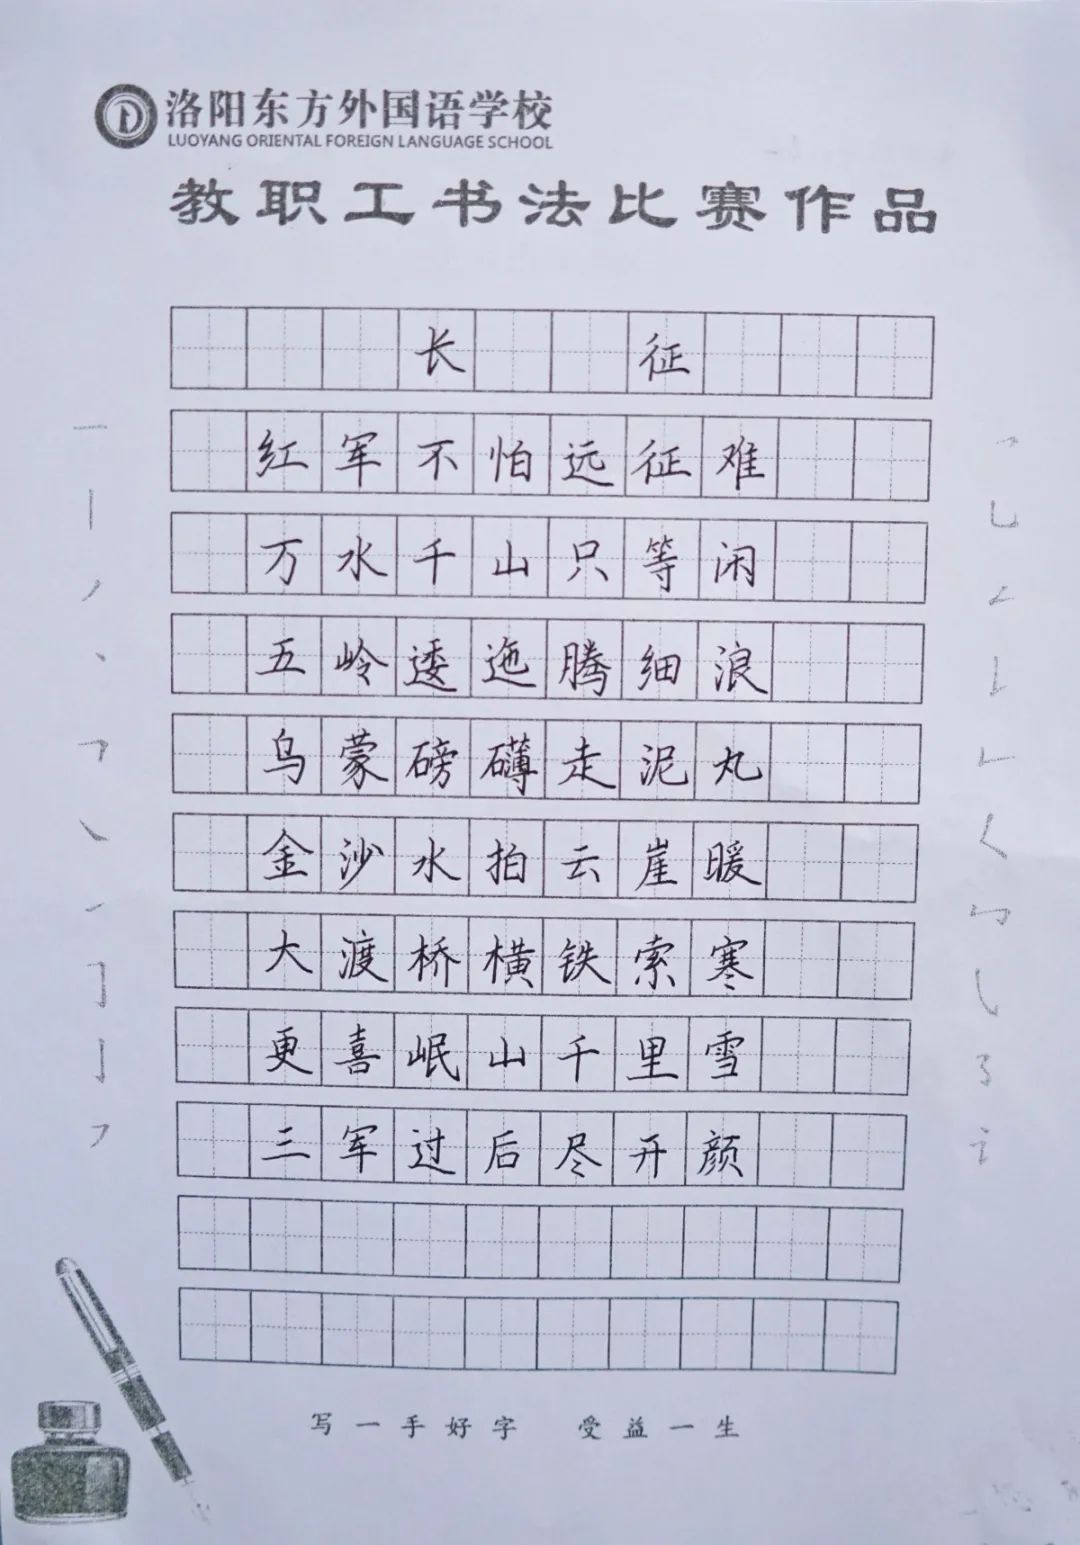 洛阳东方外国语学校
LUOYANG ORIENTAL FOREIGN LANGUAGE SCHOOL
教职工书法比赛作品
长征
红军不怕远征难
万水千山只等闲
五岭逶迤腾细浪
乌蒙磅礴走泥丸
金沙水拍云崖暖
大渡桥横铁索寒
更喜岷山千里雪
三军过后尽开颜
写一手好字 受益一生